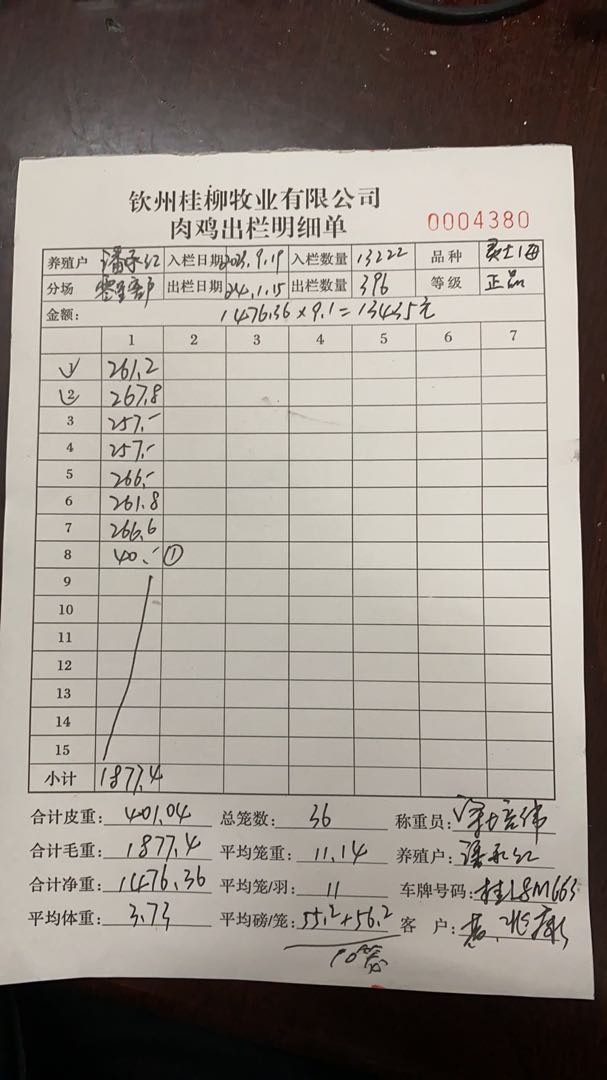 钦州桂柳牧业有限公司
肉鸡出栏明细单 0004380
养殖户 潘永红 入栏日期 2023.9.19 入栏数量 13222 品种
分场 出栏日期 24.1.15 出栏数量 396 等级 正品
金额: 1476.36×9.1=13435元
1 2 3 4 5 6 7
1 261.2
2 267.8
3 257.-
4 257.-
5 266.-
6 261.8
7 266.6
8 40.- ①
9
10
11
12
13
14
15
小计 1877.4
合计皮重: 401.04 总笼数: 36 称重员:
合计毛重: 1877.4 平均笼重: 11.14 养殖户: 潘永红
合计净重: 1476.36 平均笼/羽: 11 车牌号码: 桂L8M663
平均体重: 3.73 平均磅/笼: 55.2+56.2 客 户: